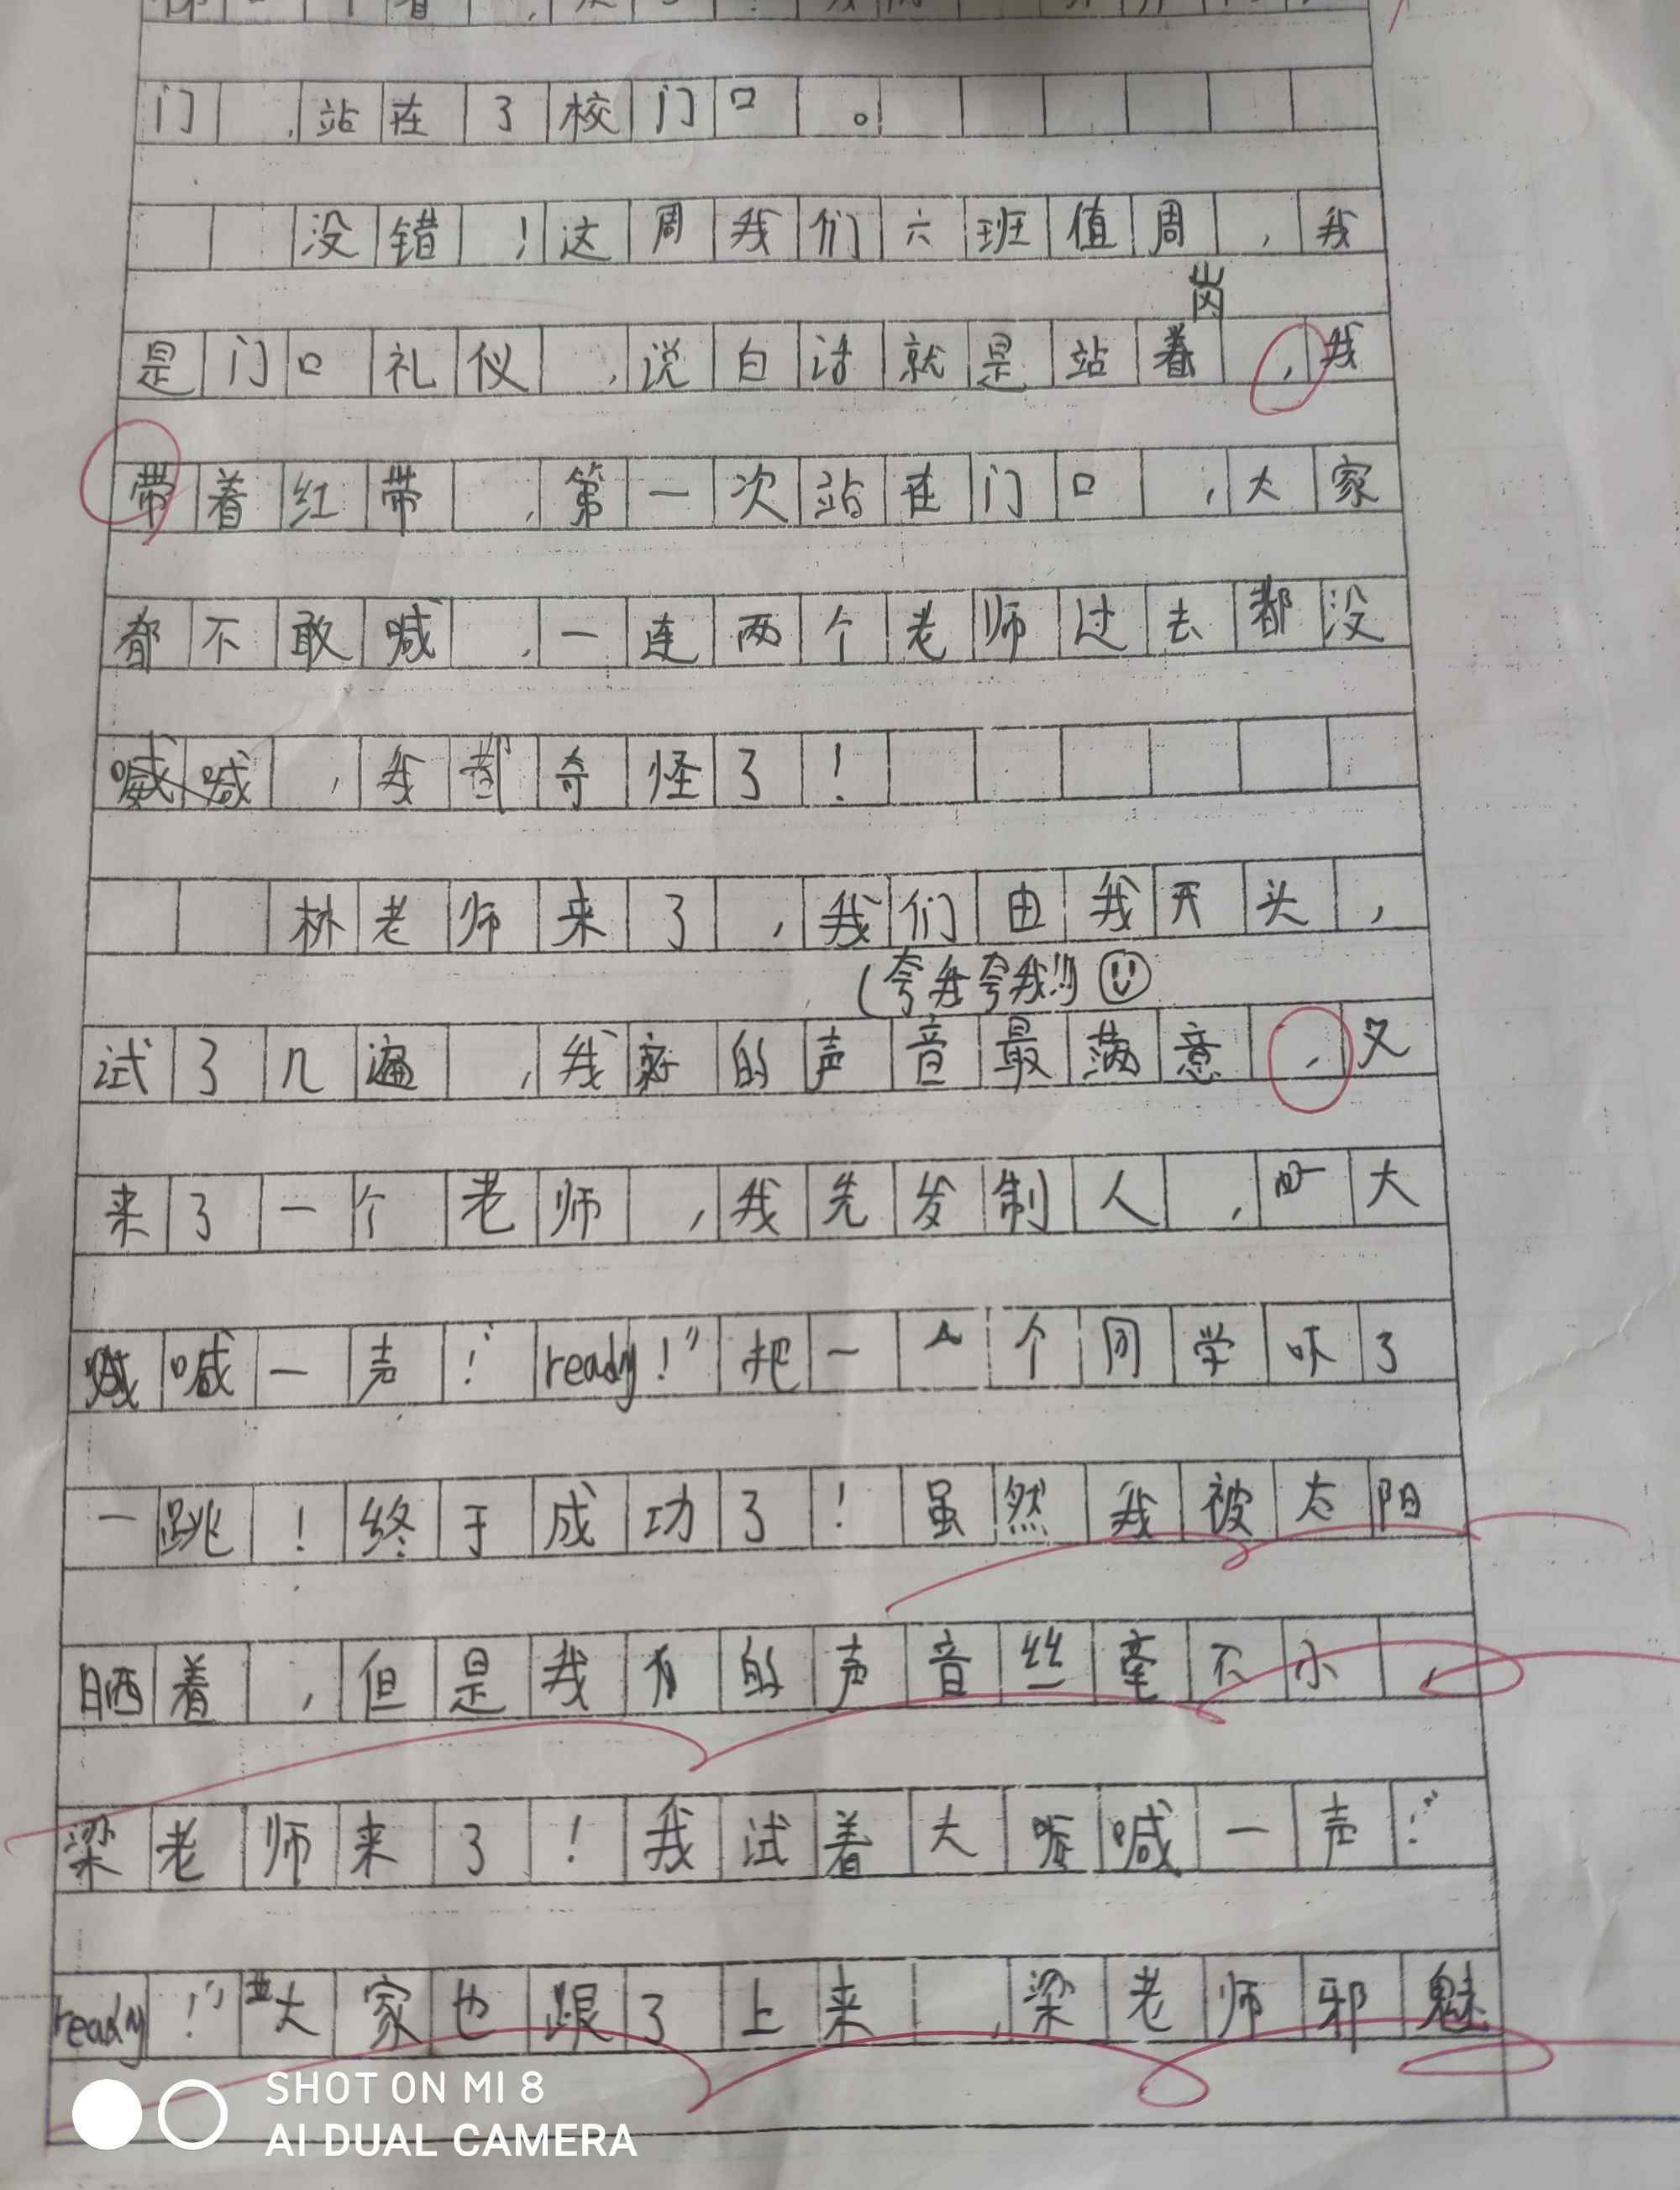 门,站在了校门口。
没错!这周我们六班值周,我
岗
是门口礼仪,说白话就是站着,我
带着红带,第一次站在门口,大家
都不敢喊,一连两个老师过去都没
喊,我都奇怪了!
林老师来了,我们由我开头,
(夸我夸我!!)
试了几遍,我的声音最满意,又
来了一个老师,我先发制人,大
喊一声:“ready!”把一个同学吓了
一跳!终于成功了!虽然我被太阳
晒着,但是我的声音丝毫不小,
梁老师来了!我试着大喊一声:“
ready!”大家也跟了上来,梁老师邪魅
SHOT ON MI 8
AI DUAL CAMERA